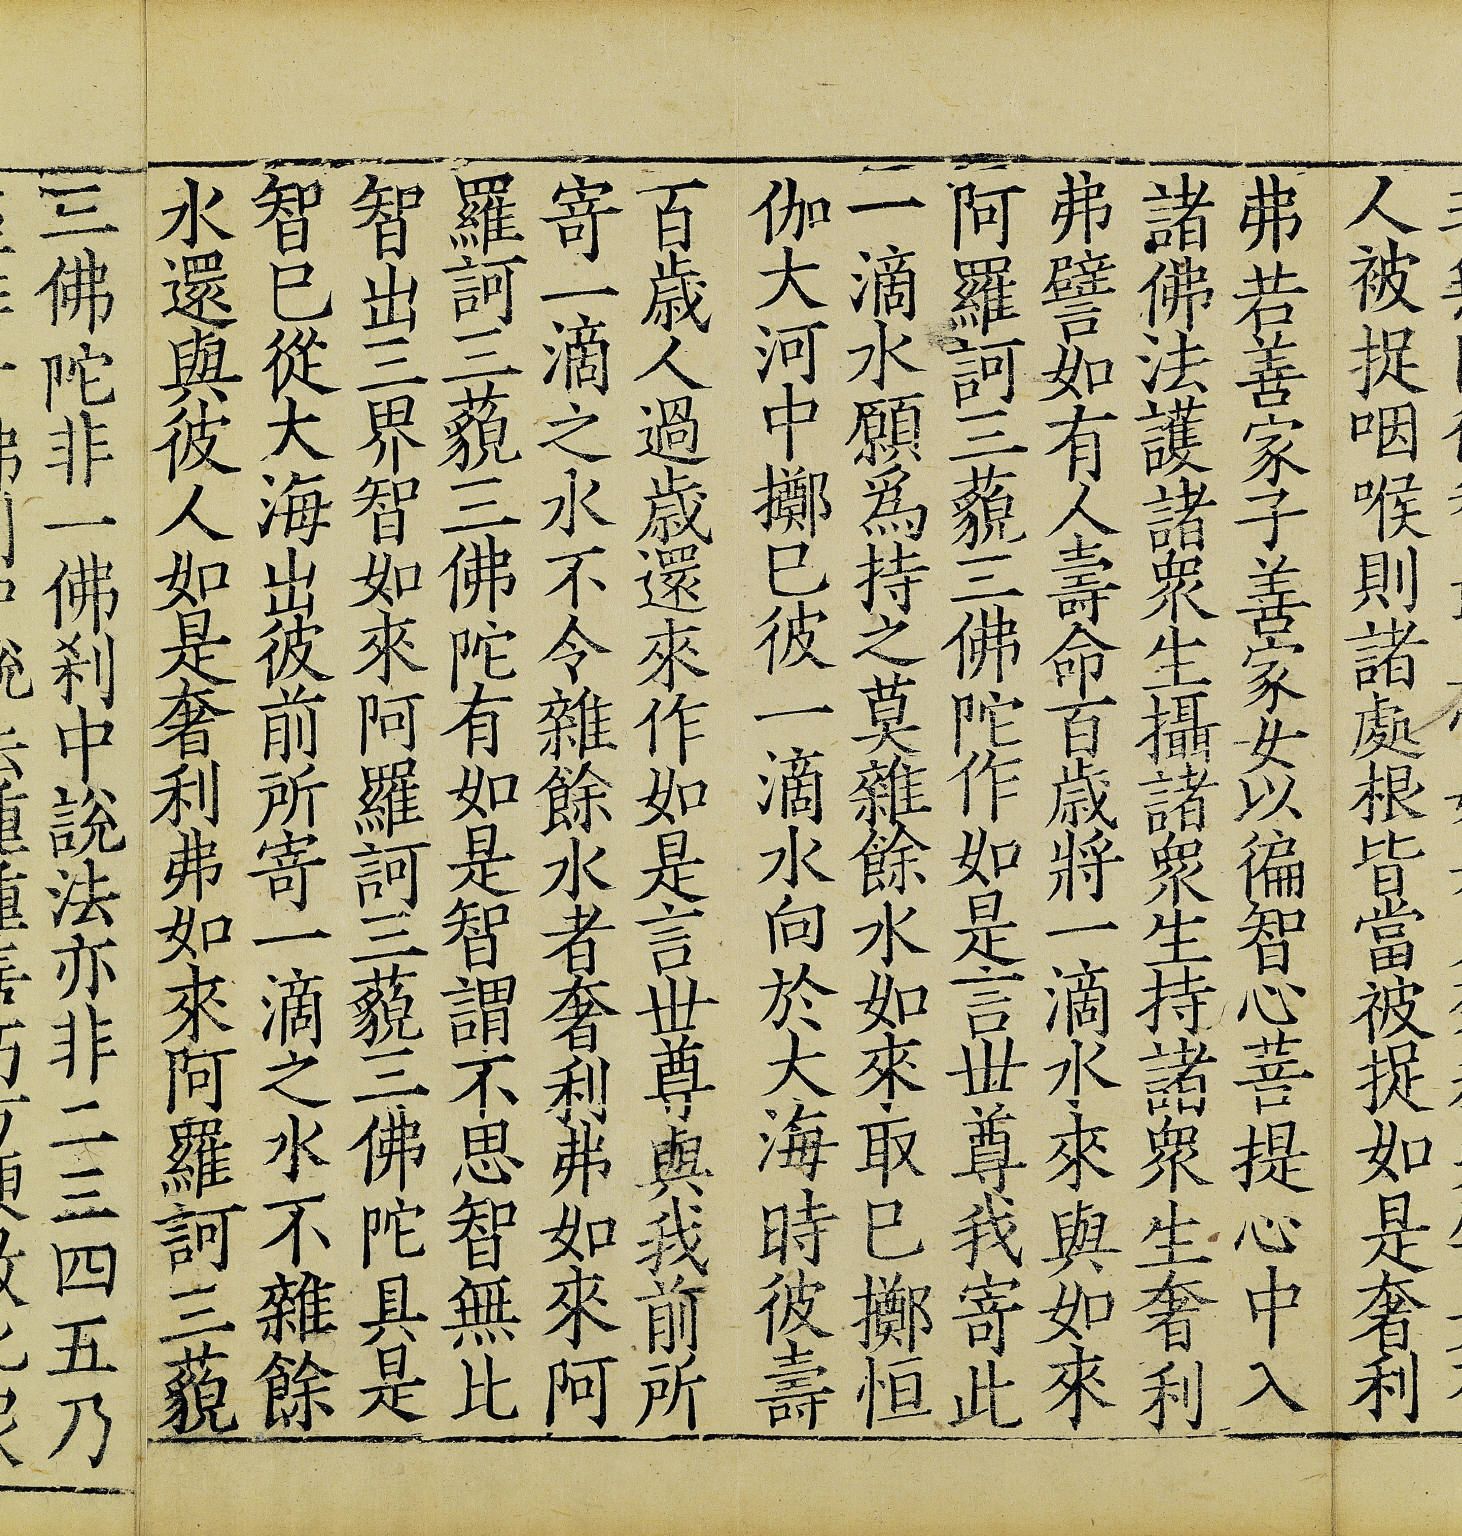 人被捉咽喉則諸處根皆當被捉如是奢利
弗若善家子善家女以徧智心菩提心中入
諸佛法護諸衆生攝諸衆生持諸衆生奢利
弗譬如有人壽命百歲將一滴水來與如來
阿羅訶三藐三佛陀作如是言世尊我寄此
一滴水願爲持之莫雜餘水如來取已擲恒
伽大河中擲已彼一滴水向於大海時彼壽
百歲人過歲還來作如是言世尊與我前所
寄一滴之水不令雜餘水者奢利弗如來阿
羅訶三藐三佛陀有如是智謂不思智無比
智出三界智如來阿羅訶三藐三佛陀具是
智已從大海出彼前所寄一滴之水不雜餘
水還與彼人如是奢利弗如來阿羅訶三藐
三佛陀非一佛刹中說法亦非二三四五乃